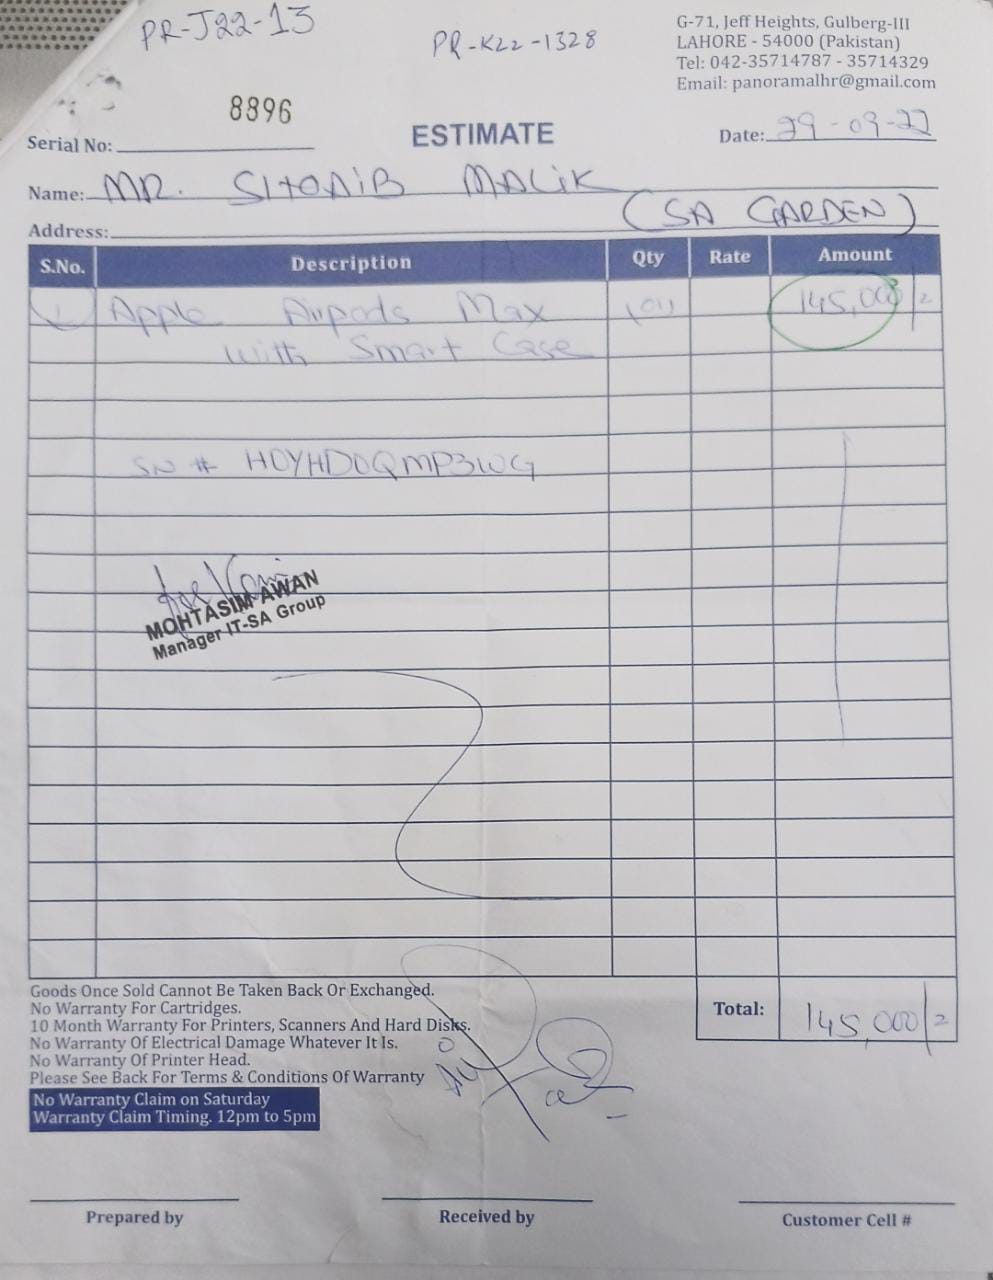 PR-J22-13
PR-K22-1328
G-71, Jeff Heights, Gulberg-III
LAHORE - 54000 (Pakistan)
Tel: 042-35714787 - 35714329
Email: panoramalhr@gmail.com
Serial No: 8896
ESTIMATE
Date: 29-09-22
Name: MR. SHOAIB MALIK
(SA GARDEN)
Address:
S.No. Description Qty Rate Amount
1 Apple Airpods Max (01) 145,000/=
with Smart Case
SN # H0YHD0QMP3WG
MOHTASIM AWAN
Manager IT-SA Group
Goods Once Sold Cannot Be Taken Back Or Exchanged.
No Warranty For Cartridges.
10 Month Warranty For Printers, Scanners And Hard Disks.
No Warranty Of Electrical Damage Whatever It Is.
No Warranty Of Printer Head.
Please See Back For Terms & Conditions Of Warranty
No Warranty Claim on Saturday
Warranty Claim Timing. 12pm to 5pm
Total: 145,000/=
Prepared by
Received by
Customer Cell #